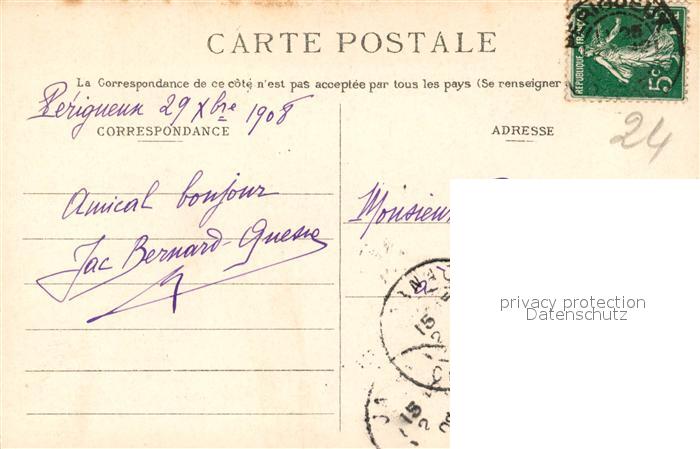 CARTE POSTALE
La Correspondance de ce côté n'est pas acceptée par tous les pays (Se renseigner
RÉPUBLIQUE FRANÇAISE
5c
Périgueux 29 Xbre 1908
CORRESPONDANCE
ADRESSE
24
Amical bonjour
Jac Bernard-
Monsieur
privacy protection
Datenschutz
15
15
2